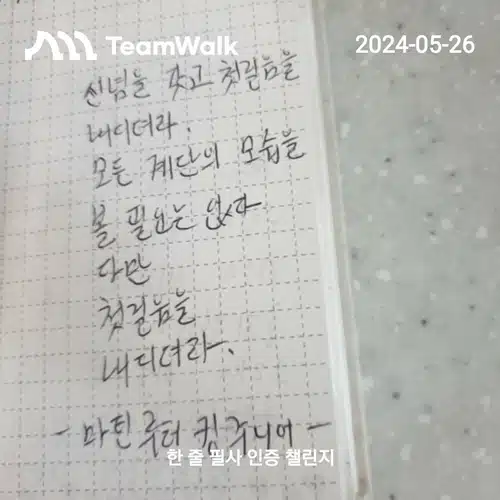 TeamWalk
2024-05-26
신념을 갖고 첫걸음을
내디뎌라.
모든 계단의 모습을
볼 필요는 없다
다만
첫걸음을
내디뎌라.
- 마틴 루터 킹 주니어 -
한 줄 필사 인증 챌린지